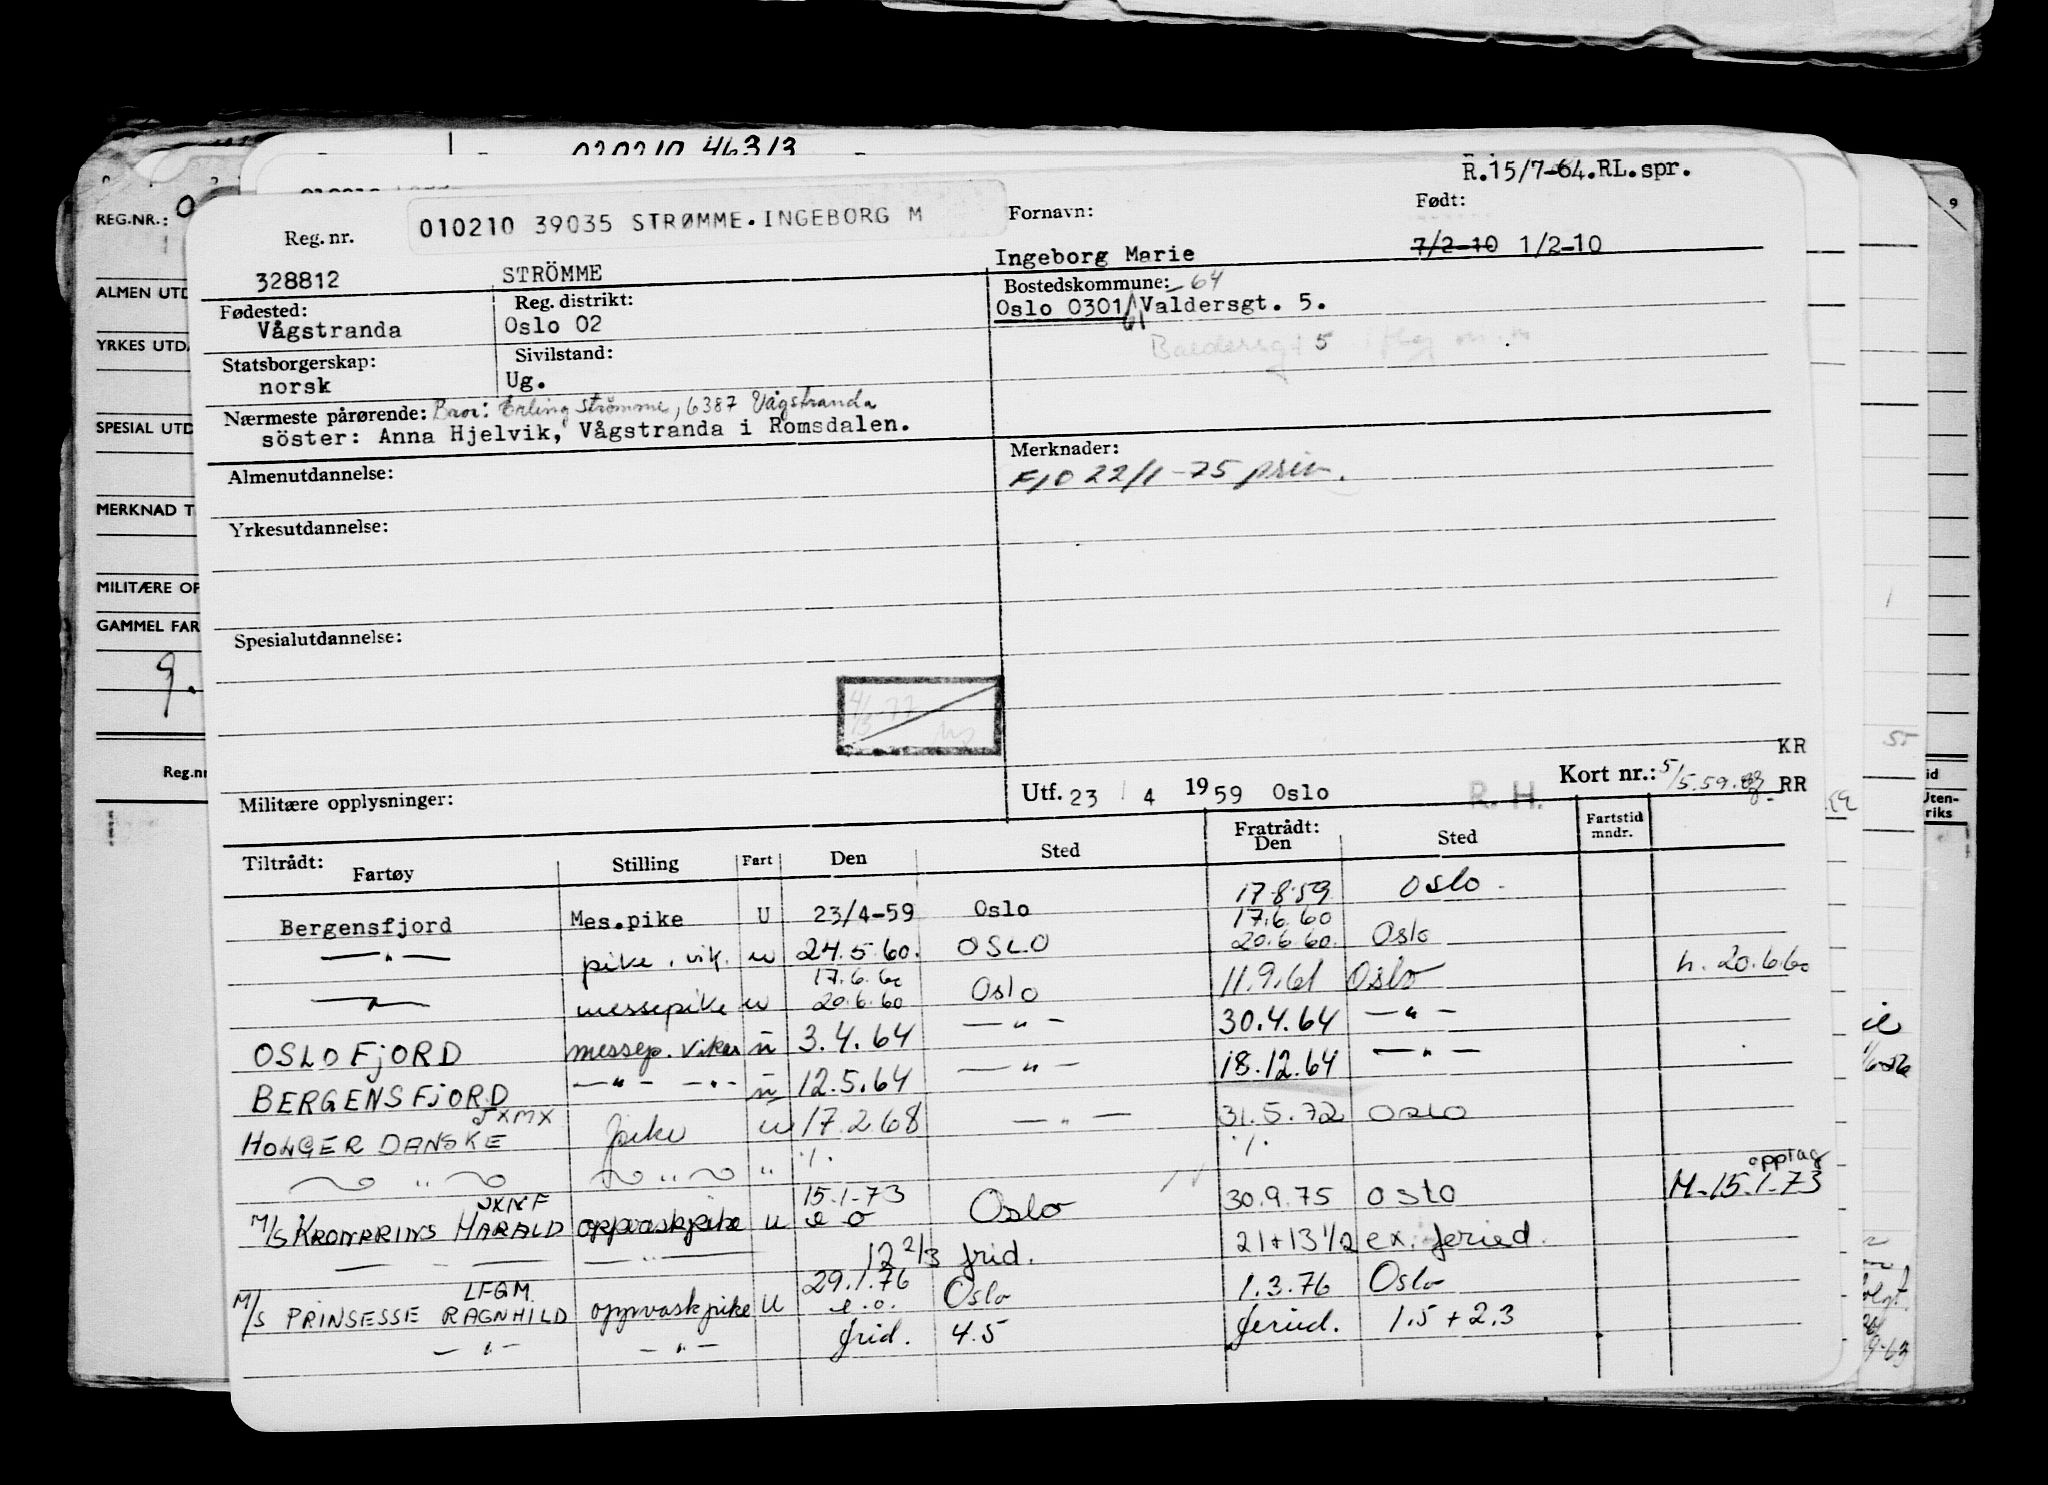 020210 46313
R.15/7-64.RL.spr.
REG.NR.:
ALMEN UTD
YRKES UTDA
SPESIAL UTD
MERKNAD T
MILITÆRE OP
GAMMEL FAR
Reg.nr
9
Reg. nr. 010210 39035 STRØMME.INGEBORG M Fornavn: Født:
328812 STRÖMME Ingeborg Marie 7/2-10 1/2-10
Fødested: Reg. distrikt: Bostedskommune: -64
Vågstranda Oslo 02 Oslo 0301/Valdersgt. 5.
61
Baldersgt 5
Statsborgerskap: Sivilstand:
norsk Ug.
Nærmeste pårørende: Bror: Erling Strömme, 6387 Vågstranda
söster: Anna Hjelvik, Vågstranda i Romsdalen.
Almenutdannelse: Merknader:
FJO 22/1-75 prin.
Yrkesutdannelse:
Spesialutdannelse:
4/3-77
KR
Militære opplysninger: Utf. 23 / 4 1959 Oslo R. H. Kort nr.: 5/5.59. RR
Tiltrådt: Fratrådt: Fartstid mndr.
Fartøy Stilling Fart Den Sted Den Sted
Bergensfjord Mes.pike U 23/4-59 Oslo 17.8.59 Oslo.
—"— pike. vik. u 24.5.60. OSLO 17.6.60 20.6.60. Oslo
—"— messepike u 17.6.60 20.6.60 Oslo 11.9.61 Oslo h. 20.6.60
OSLOFJORD messep. vikar u 3.4.64 —"— 30.4.64 —"—
BERGENSFJORD —"— —"— u 12.5.64 —"— 18.12.64 —"—
JXMX
HOLGER DANSKE pike u 17.2.68 —"— 31.5.72 OSLO
" " " ·/· ·/·
JXNF
M/S KRONPRINS HARALD oppvaskpike u 15.1-73 e o Oslo 30.9.75 OSLO M-15.1-73 opptag
— " — — " — 12 2/3 frid. 21+13 1/2 ex. feried.
LFGM
M/S PRINSESSE RAGNHILD oppvaskpike U 29.1.76 e.o. Oslo 1.3.76 Oslo
—"— —"— frid. 4.5 feried. 1.5 + 2.3
id
Uten-
riks